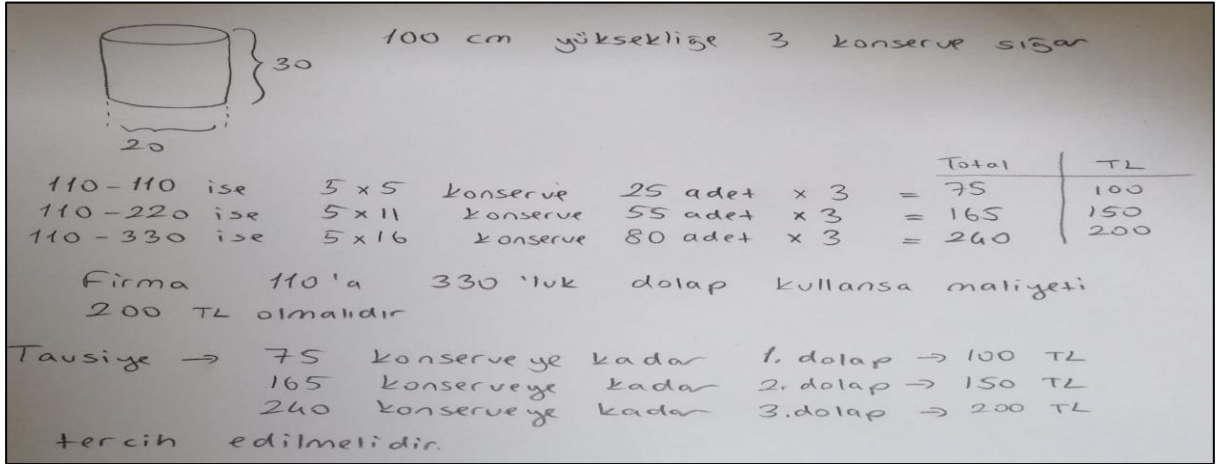 100 cm yüksekliğe 3 konserve sığar
30
20
Total TL
110-110 ise 5 x 5 konserve 25 adet x 3 = 75 100
110-220 ise 5 x 11 konserve 55 adet x 3 = 165 150
110-330 ise 5 x 16 konserve 80 adet x 3 = 240 200
Firma 110'a 330'luk dolap kullansa maliyeti
200 TL olmalıdır
Tavsiye → 75 konserveye kadar 1. dolap → 100 TL
165 konserveye kadar 2. dolap → 150 TL
240 konserveye kadar 3. dolap → 200 TL
tercih edilmelidir.